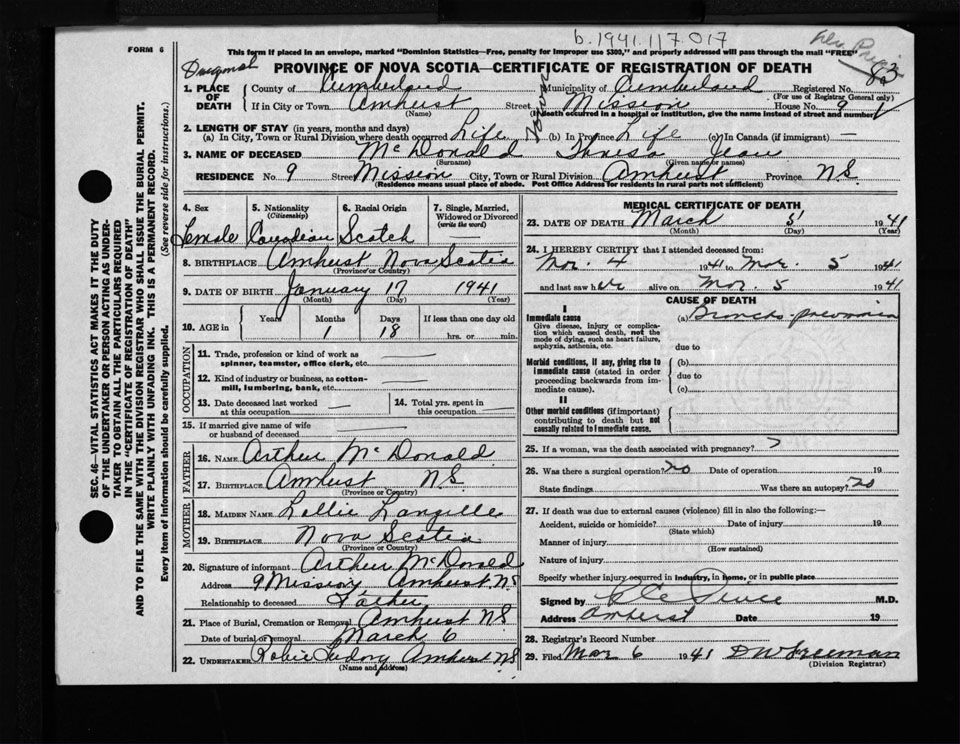 b.1941.117.017
FORM 6
This form if placed in an envelope, marked "Dominion Statistics—Free, penalty for improper use $300," and properly addressed will pass through the mail "FREE"
Original
83
PROVINCE OF NOVA SCOTIA—CERTIFICATE OF REGISTRATION OF DEATH
1. PLACE OF DEATH County of Cumberland Municipality of Cumberland Registered No.
(For use of Registrar General only)
If in City or Town Amherst Street Mission House No. 9
(Name) (If death occurred in a hospital or institution, give the name instead of street and number)
2. LENGTH OF STAY (in years, months and days)
(a) In City, Town or Rural Division where death occurred Life (b) In Province Life (c) In Canada (if immigrant) —
3. NAME OF DECEASED McDonald Theresa Jean
(Surname) (Given name or names)
RESIDENCE No. 9 Street Mission City, Town or Rural Division Amherst Province N.S.
(Residence means usual place of abode. Post Office Address for residents in rural parts not sufficient)
SEC. 46—VITAL STATISTICS ACT MAKES IT THE DUTY
OF THE UNDERTAKER OR PERSON ACTING AS UNDER-
TAKER TO OBTAIN ALL THE PARTICULARS REQUIRED
IN THE "CERTIFICATE OF REGISTRATION OF DEATH"
AND TO FILE THE SAME WITH THE DIVISION REGISTRAR WHO SHALL ISSUE THE BURIAL PERMIT.
WRITE PLAINLY WITH UNFADING INK. THIS IS A PERMANENT RECORD.
Every item of information should be carefully supplied. (See reverse side for instructions.)
4. Sex 5. Nationality (Citizenship) 6. Racial Origin 7. Single, Married, Widowed or Divorced (write the word)
Female Canadian Scotch —
8. BIRTHPLACE Amherst Nova Scotia
(Province or Country)
9. DATE OF BIRTH January 17 1941
(Month) (Day) (Year)
10. AGE in Years Months Days If less than one day old
1 18 hrs. or min.
OCCUPATION
11. Trade, profession or kind of work as
spinner, teamster, office clerk, etc. —
12. Kind of industry or business, as cotton-
mill, lumbering, bank, etc. —
13. Date deceased last worked at this occupation — 14. Total yrs. spent in this occupation —
15. If married give name of wife
or husband of deceased —
FATHER
16. NAME Arthur McDonald
17. BIRTHPLACE Amherst N.S.
(Province or Country)
MOTHER
18. MAIDEN NAME Lollie Langille
19. BIRTHPLACE Nova Scotia
(Province or Country)
20. Signature of informant Arthur McDonald
Address 9 Mission Amherst N.S
Relationship to deceased Father
21. Place of Burial, Cremation or Removal Amherst N.S
Date of burial or removal March 6
22. UNDERTAKER Amherst N.S
(Name and address)
MEDICAL CERTIFICATE OF DEATH
23. DATE OF DEATH March 5 1941
(Month) (Day) (Year)
24. I HEREBY CERTIFY that I attended deceased from:
Mar. 4 1941 to Mar. 5 1941
and last saw her alive on Mar. 5 1941
CAUSE OF DEATH
I
Immediate cause (a) Broncho pneumonia
Give disease, injury or complica-
tion which caused death, not the
mode of dying, such as heart failure,
asphyxia, asthenia, etc. due to
Morbid conditions, if any, giving rise to (b)
immediate cause (stated in order due to
proceeding backwards from im-
mediate cause). (c)
II
Other morbid conditions (if important)
contributing to death but not
causally related to immediate cause.
25. If a woman, was the death associated with pregnancy?
26. Was there a surgical operation? no Date of operation 19
State findings Was there an autopsy? no
27. If death was due to external causes (violence) fill in also the following:—
Accident, suicide or homicide? Date of injury 19
(State which)
Manner of injury
(How sustained)
Nature of injury
Specify whether injury occurred in industry, in home, or in public place
Signed by M.D.
Address Amherst Date 19
28. Registrar's Record Number
29. Filed Mar 6 1941 D W Freeman
(Division Registrar)